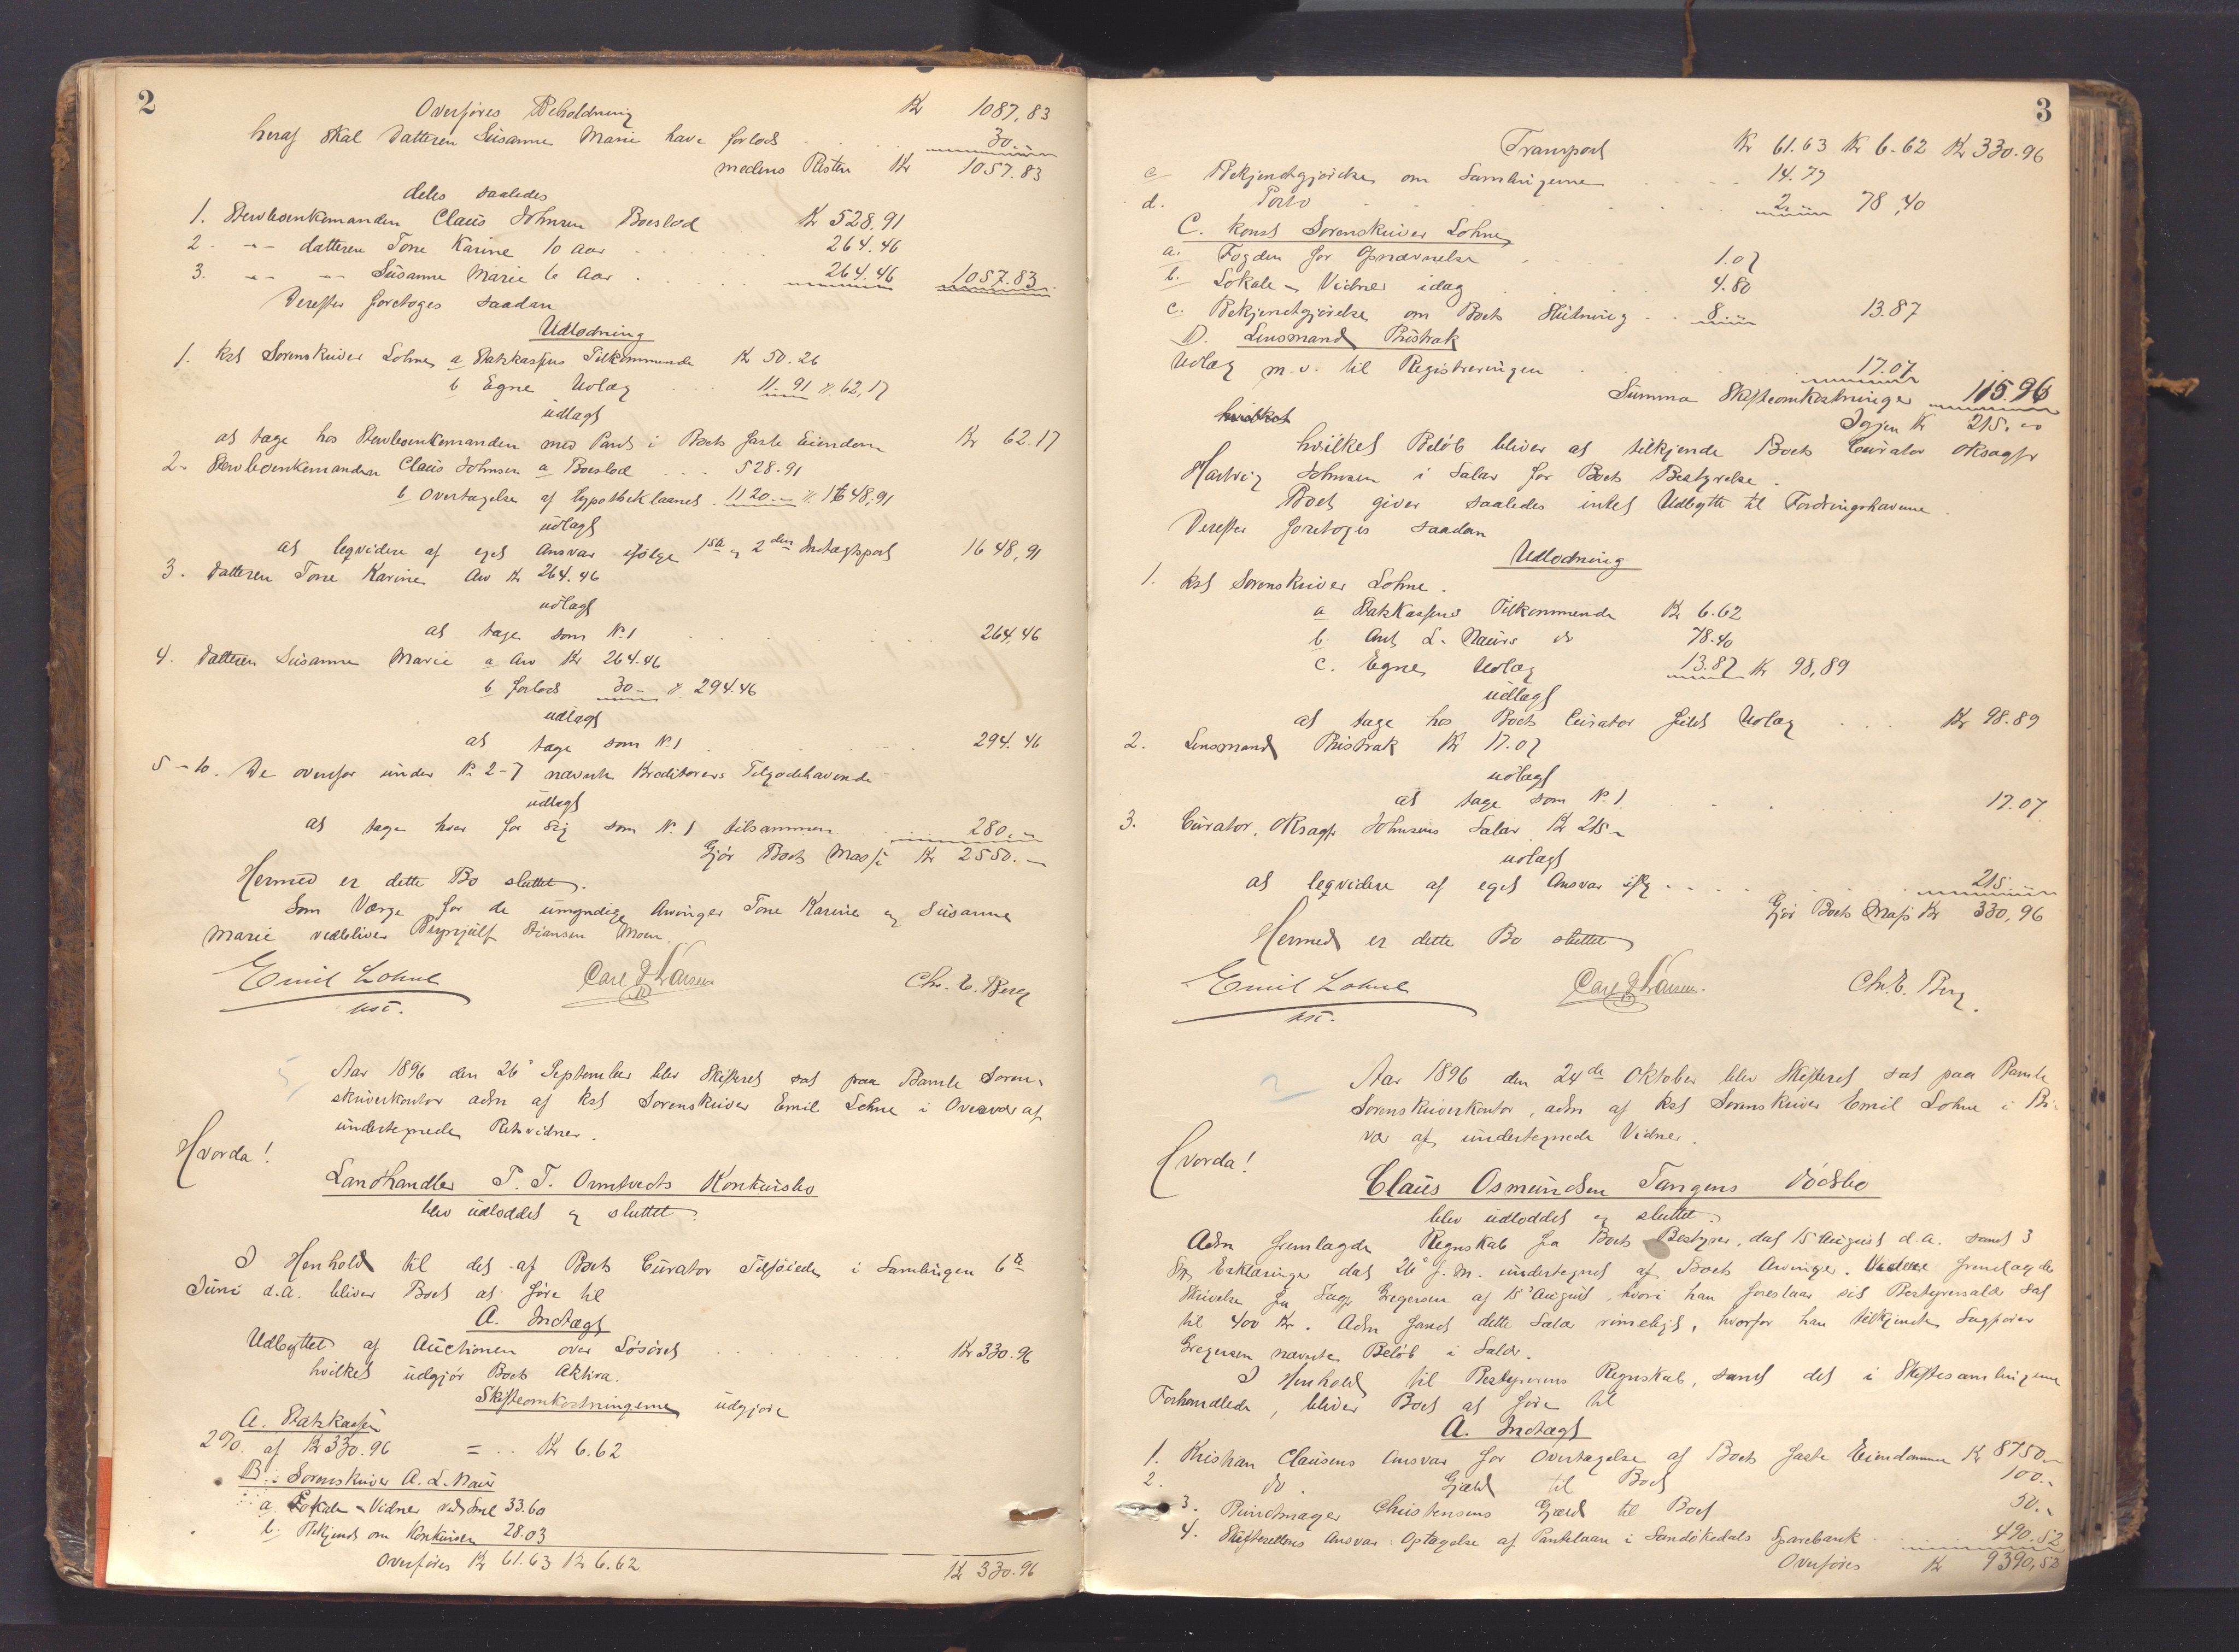 2
Overføres Beholdning Kr 1087,83
heraf skal Datteren Susanne Marie have forlods 30.-
medens Resten Kr 1057.83
deles saaledes
1. Sterboenkemanden Claus Johnsen Boeslod Kr 528.91
2. -"- datteren Tone Karine 10 Aar 264.46
3. -"- -"- Susanne Marie 6 Aar 264.46 1057.83
Derefter foretoges saadan
Udlodning
1. Kst Sorenskriver Lohne, a Statskassens Tilkommende Kr 50.26
b Egne Udlæg 11.91 // 62,17
udlagt
at tage hos Sterboenkemanden med Pant i Boets faste Eiendom Kr 62.17
2. Sterboenkemanden Claus Johnsen a Boeslod 528.91
b Overtagelse af Hypotheklaanet 1120.- // 1648,91
udlagt
at leqvidere af eget Ansvar ifølge 1ste og 2den Indtægtspost 1648,91
3. Datteren Tone Karine Arv Kr 264.46
udlagt
at tage som No 1 264,46
4. Datteren Susanne Marie a Arv Kr 264.46
b forlods 30- // 294.46
udlagt
at tage som No 1 294.46
5-10. De ovenfor under No 2-7 nævnte Kreditorers Tilgodehavende
udlagt
at tage hver for sig som No 1 tilsammen 280.-
Gjør Boets Masse Kr 2550.-
Hermed er dette Bo sluttet.
Som Værge for de umyndige Arvinger Tone Karine og Susanne
Marie vedbliver Brynjulf Stiansen Moen.
Emil Lohne Carl J Larsen Chr. E. Berg
kst.
Aar 1896 den 26' September blev Skifteret sat paa Bamle Soren-
skriverkontor adm af kst Sorenskriver Emil Lohne i Overvær af
undertegnede Retsvidner.
Hvorda!
Landhandler P. T. Ormtvedts Konkursbo
blev udloddet og sluttet.
I Henhold til det af Boets Curator Tilføiede i Samlingen 6te
Juni d.A. bliver Boet at føre til
A. Indtægt
Udbyttet af Auctionen over Løsøret Kr 330.96
hvilket udgjør Boets Aktiva.
Skifteomkostningerne udgjøre
A. Statskassen
2% af Kr 330.96 = Kr 6.62
B. Sorenskriver A. L. Naur
a Lokale & Vidner ved Saml 33.60
b. Bekjendt om Konkursen 28.03
Overføres Kr 61.63 Kr 6.62 Kr 330.96
3
Transport Kr 61.63 Kr 6.62 Kr 330.96
c Bekjendtgjørelse om Samlingerne 14.77
d. Porto 2.- 78,40
C. Konst Sorenskriver Lohne
a. Fogden for Opnævnelse 1.07
b. Lokale & Vidner idag 4.80
c. Bekjendtgjørelse om Boets Slutning 8.- 13.87
D. Lensmand Pristrak
Udlæg m.v. til Registreringen 17.07
Summa Skifteomkostninger 115.96
hvilket Igjen Kr 215.-
hvilket Beløb bliver at tilkjende Boets Curator Oksagfr
Hartvig Johnsen i Salar for Boets Bestyrelse.
Boet giver saaledes intet Udbytte til Fordringshaverne.
Derefter foretoges saadan
Udlodning
1. Kst Sorenskriver Lohne.
a Statskassens Tilkommende Kr 6.62
b Ant L. Naurs do 78.40
c. Egne Udlæg 13.87 Kr 98,89
udlagt
at tage hos Boets Curator fuldt Udlæg Kr 98.89
2. Lensmand Pristrak Kr 17.07
udlagt
at tage som No 1 17.07
3. Curator, Oksagfr Johnsens Salar Kr 215-
udlagt
at leqvidere af eget Ansvar 215
Gjør Boets Masse Kr 330,96
Hermed er dette Bo sluttet
Emil Lohne Carl J Larsen. Chr. E. Berg.
kst.
Aar 1896 den 24de Oktober blev Skifteret sat paa Bamle
Sorenskriverkontor, adm af kst Sorenskriver Emil Lohne i Bi-
vær af undertegnede Vidner.
Hvorda!
Claus Osmundsen Tangens Dødsbo
blev udloddet og sluttet.
Adm fremlagde Regnskab fra Boets Bestyrer, dat 15 August d.A. samt 3
Erklæringer dat 26' f.M. undertegnet af Boets Arvinger. Videre fremlagdes
Skrivelse fra Sagf Gregersen af 15' August, hvori han foreslaar sit Bestyrersalær sat
til 400 Kr. Adm fandt dette Salær rimeligt, hvorfor han tilkjendte Sagfører
Gregersen nævnte Beløb i Salær.
I Henhold til Bestyrerens Regnskab, samt det i Skiftesamlingerne
Forhandlede, bliver Boet at føre til
A. Indtægt
1. Kristian Clausens Ansvar for Overtagelse af Boets faste Eiendomme Kr 8750.-
2. do. Gjæld til Boet 100.-
3. Buntmager Christensens Gjæld til Boet 50.-
4. Skifterettens Ansvar: Optagelse af Pantelaan i Sandøkedals Sparebank 490.52
Overføres Kr 9390,52